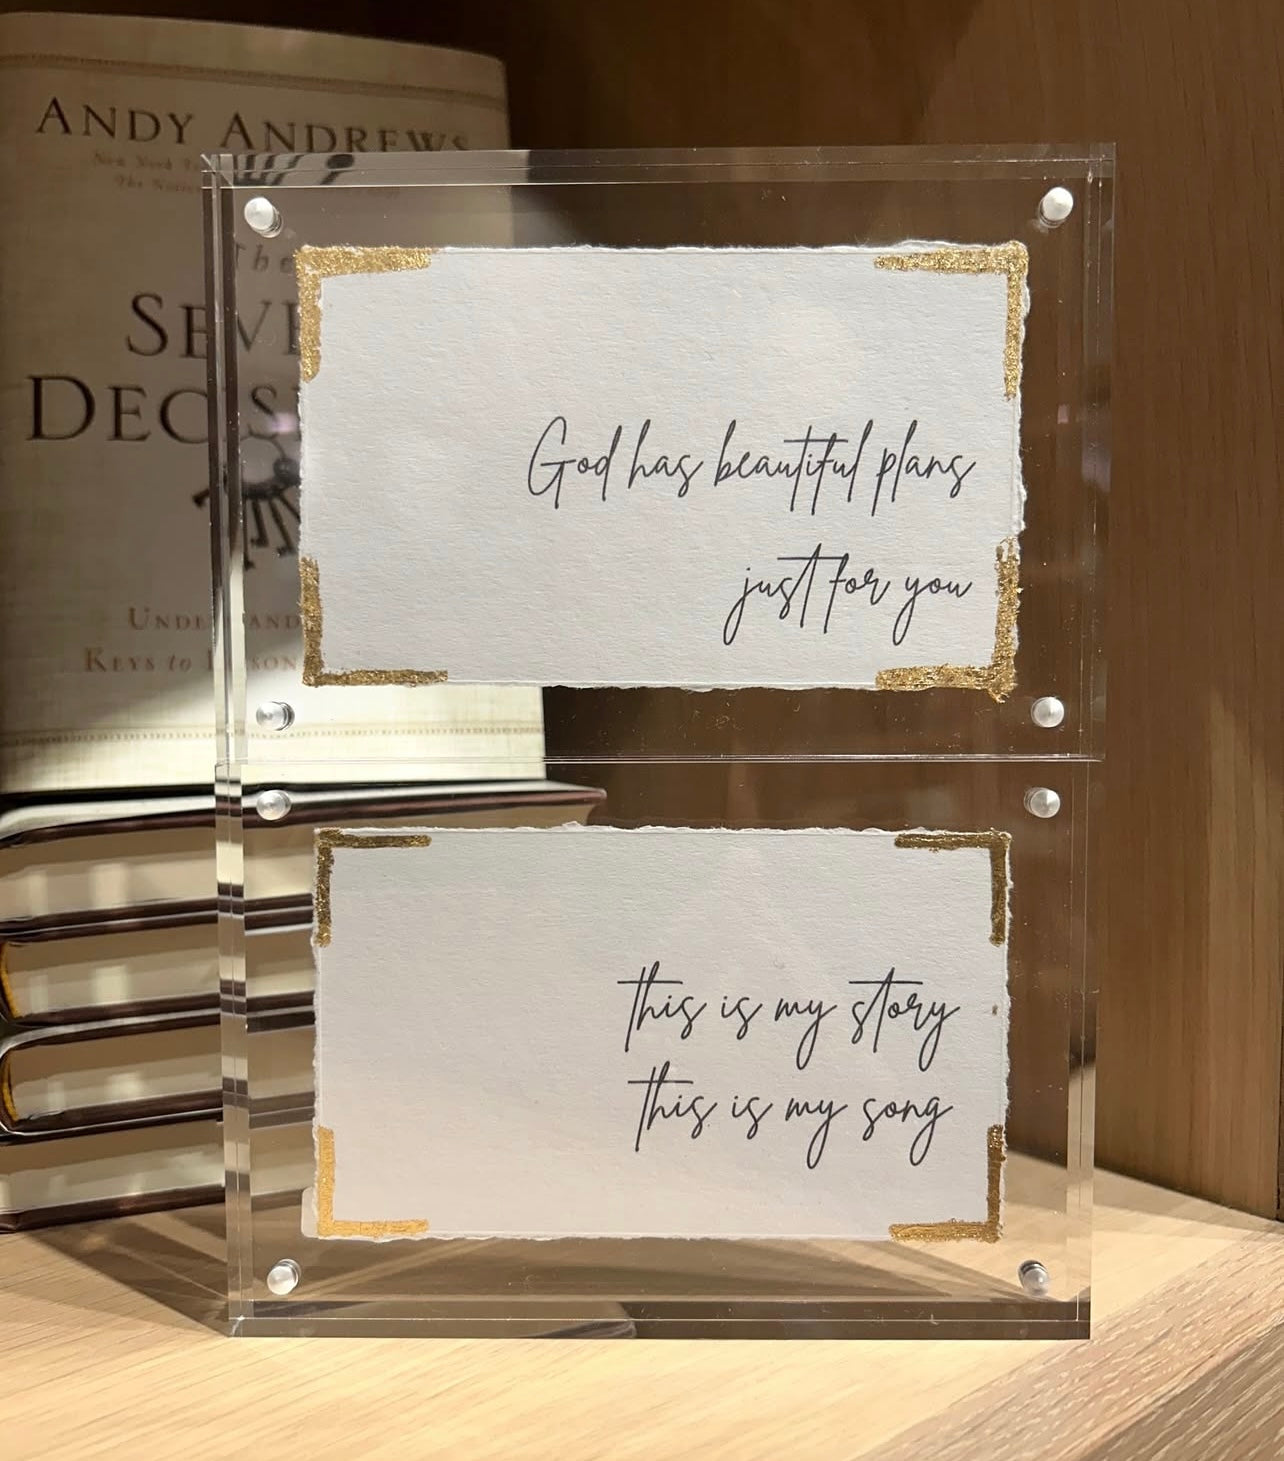 ANDY ANDREWS
New York
The
The
SEVE
DECIS
KEYS to
God has beautiful plans
just for you
this is my story
this is my song